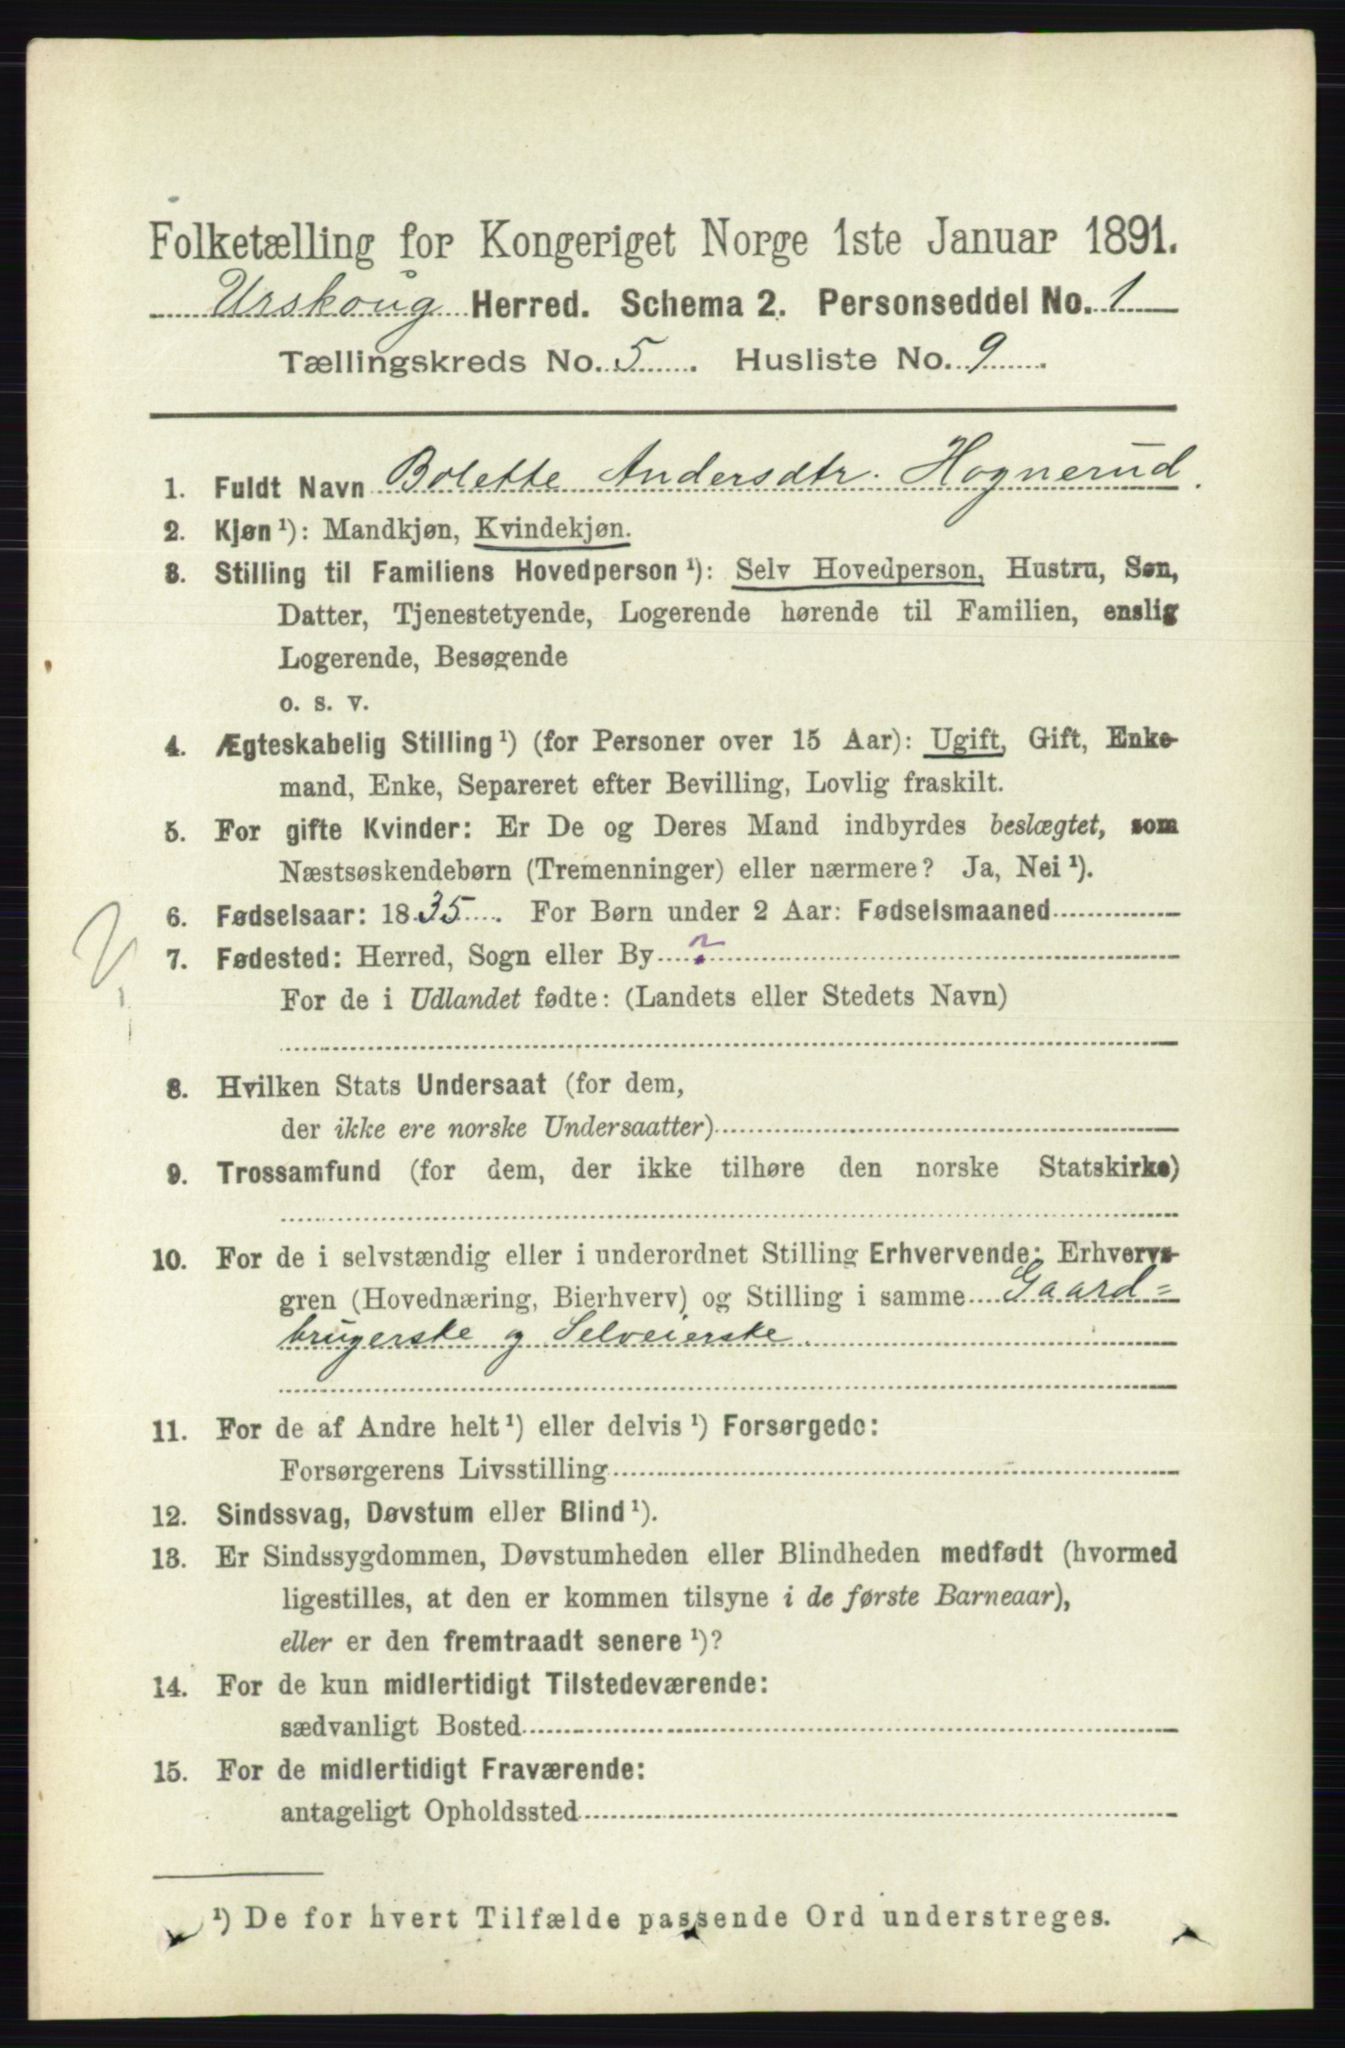 Folketælling for Kongeriget Norge 1ste Januar 1891.
Urskoug Herred. Schema 2. Personseddel No. 1
Tællingskreds No. 5. Husliste No. 9.
1. Fuldt Navn Bolette Andersdtr. Hognerud.
2. Kjøn ¹): Mandkjøn, Kvindekjøn.
3. Stilling til Familiens Hovedperson ¹): Selv Hovedperson, Hustru, Søn,
Datter, Tjenestetyende, Logerende hørende til Familien, enslig
Logerende, Besøgende
o. s. v.
4. Ægteskabelig Stilling ¹) (for Personer over 15 Aar): Ugift, Gift, Enke-
mand, Enke, Separeret efter Bevilling, Lovlig fraskilt.
5. For gifte Kvinder: Er De og Deres Mand indbyrdes beslægtet, som
Næstsøskendebørn (Tremenninger) eller nærmere? Ja, Nei ¹).
6. Fødselsaar: 1835. For Børn under 2 Aar: Fødselsmaaned
7. Fødested: Herred, Sogn eller By ?
?
For de i Udlandet fødte: (Landets eller Stedets Navn)
8. Hvilken Stats Undersaat (for dem,
der ikke ere norske Undersaatter)
9. Trossamfund (for dem, der ikke tilhøre den norske Statskirke)
10. For de i selvstændig eller i underordnet Stilling Erhvervende: Erhvervs-
gren (Hovednæring, Bierhverv) og Stilling i samme Gaard=
brugerske og Selveierske.
11. For de af Andre helt ¹) eller delvis ¹) Forsørgede:
Forsørgerens Livsstilling
12. Sindssvag, Døvstum eller Blind ¹).
13. Er Sindssygdommen, Døvstumheden eller Blindheden medfødt (hvormed
ligestilles, at den er kommen tilsyne i de første Barneaar),
eller er den fremtraadt senere ¹)?
14. For de kun midlertidigt Tilstedeværende:
sædvanligt Bosted
15. For de midlertidigt Fraværende:
antageligt Opholdssted
¹) De for hvert Tilfælde passende Ord understreges.